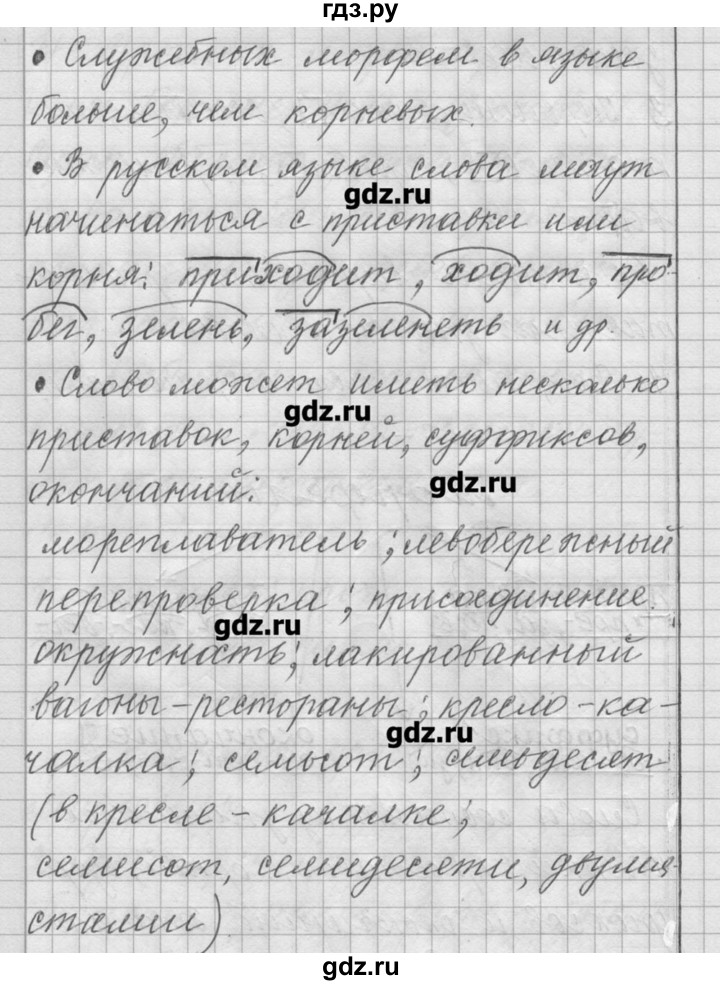 гдз.ру
• Служебных морфем в языке
больше, чем корневых.
• В русском языке слова могут
gdz.ru
начинаться с приставки или
корня: приходит, ходит, про-
бег, зелень, зазеленеть и др.
• Слово может иметь несколько
gdz.ru
приставок, корней, суффиксов,
gdz.ru
окончаний:
мореплаватель; левобережный
перепроверка; присоединение.
gdz.ru
окружность; лакированный
вагоны-рестораны; кресло-ка-
gdz.ru
чалка; семьсот; семьдесят
(в кресле-качалке;
семисот, семидесяти, двумя-
стами)
gdz.ru